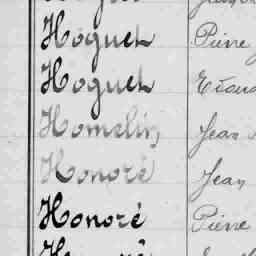 Hoguet Pierre
Hoguet Edoua
Homelin Jean
Honoré Jean
Honoré Pierre